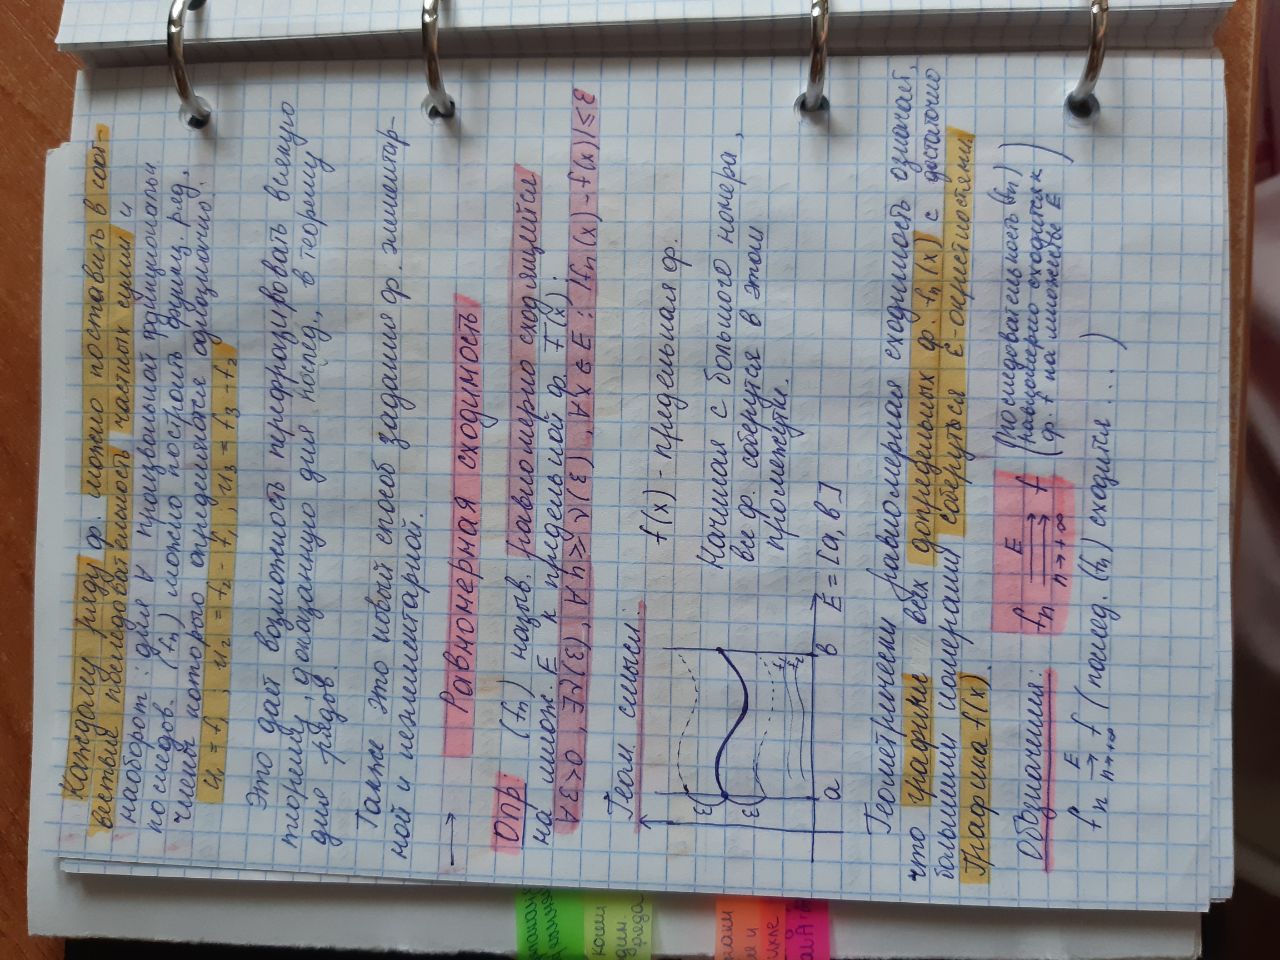 Каждому ряду ф. можно поставить в соот-
вествие последовательность частных сумм и
наоборот: для ∀ произвольной функциональн.
последов. (fn) можно построить функц. ряд,
члены которого определяются однозначно:
u₁ = f₁ ; u₂ = f₂ - f₁ ; u₃ = f₃ - f₂
Это дает возможность перефразировать всякую
теорему, доказанную для послед., в теорему
для рядов.
Также это новый способ задания ф. элементар-
ной и неэлементарной.
→ Равномерная сходимость
Опр: (fn) назыв. равномерно сходящейся
на множ. E к предельной ф. f(x):
∀ε>0, ∃N(ε), ∀n≥N(ε), ∀x∈E: |fn(x)-f(x)|≤ε
Геом. смысл:
f(x) - предельная ф.
Начиная с большого номера,
все ф. соберутся в этом
промежутке.
ε
ε
f₁
f₂
a
b
E = [a, b]
Геометрически равномерная сходимость означает,
что графики всех допредельных ф. fn(x) с достаточно
большими номерами соберуться ε-окрестностями
графика f(x).
Обозначения: fn E ⇉ n→+∞ f (последовательность (fn)
равномерно сходится к
ф. f на множестве E)
fn E → n→+∞ f (послед. (fn) сходится ...)
коши
ряда